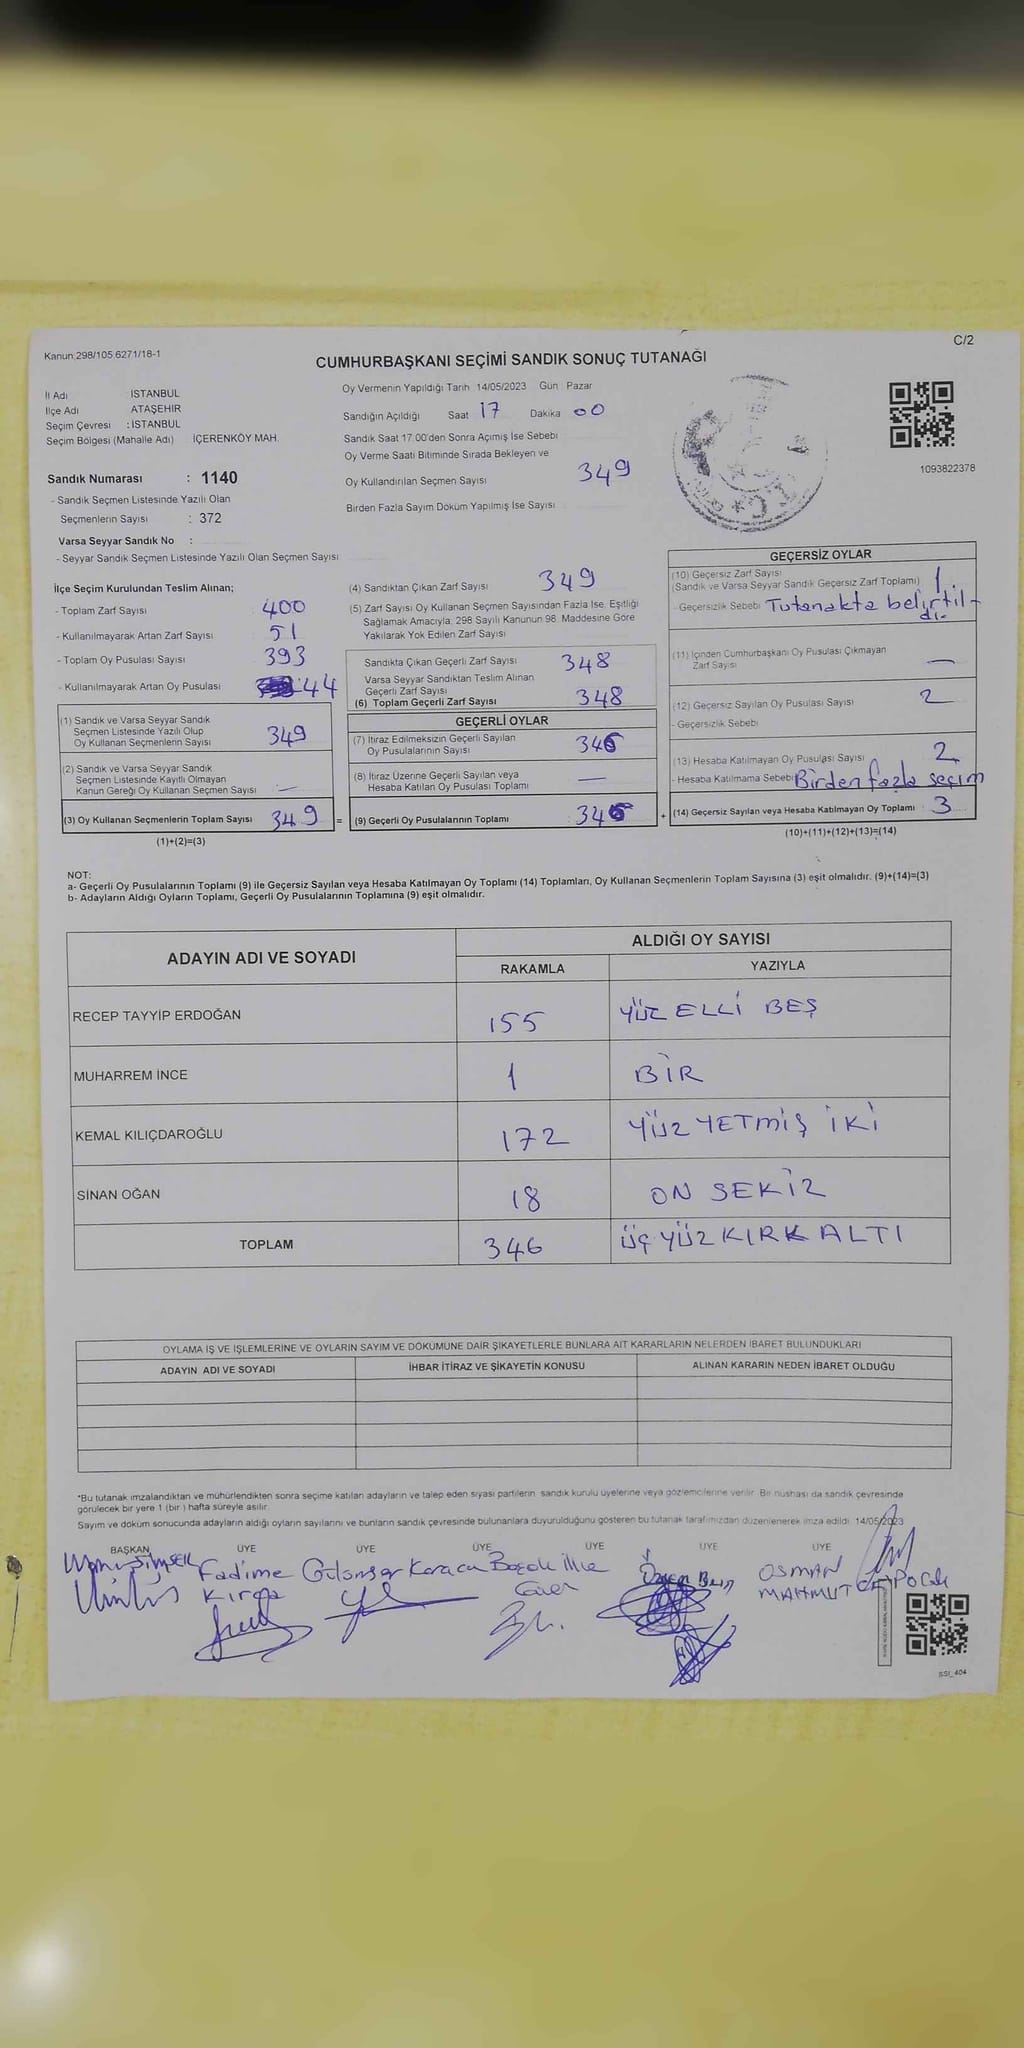 C/2
Kanun 298/105 6271/18-1
CUMHURBAŞKANI SEÇİMİ SANDIK SONUÇ TUTANAĞI
İl Adı : İSTANBUL
İlçe Adı ATAŞEHİR
Seçim Çevresi : İSTANBUL
Seçim Bölgesi (Mahalle Adı) İÇERENKÖY MAH.
Sandık Numarası : 1140
- Sandık Seçmen Listesinde Yazılı Olan
Seçmenlerin Sayısı : 372
Varsa Seyyar Sandık No :
- Seyyar Sandık Seçmen Listesinde Yazılı Olan Seçmen Sayısı
Oy Vermenin Yapıldığı Tarih 14/05/2023 Gün Pazar
Sandığın Açıldığı Saat 17 Dakika 00
Sandık Saat 17.00'den Sonra Açımış İse Sebebi
Oy Verme Saati Bitiminde Sırada Bekleyen ve
Oy Kullandırılan Seçmen Sayısı 349
Birden Fazla Sayım Döküm Yapılmış İse Sayısı
1093822378
İlçe Seçim Kurulundan Teslim Alınan;
- Toplam Zarf Sayısı 400
- Kullanılmayarak Artan Zarf Sayısı 51
- Toplam Oy Pusulası Sayısı 393
- Kullanılmayarak Artan Oy Pusulası 44
(1) Sandık ve Varsa Seyyar Sandık
Seçmen Listesinde Yazılı Olup
Oy Kullanan Seçmenlerin Sayısı 349
(2) Sandık ve Varsa Seyyar Sandık
Seçmen Listesinde Kayıtlı Olmayan
Kanun Gereği Oy Kullanan Seçmen Sayısı —
(3) Oy Kullanan Seçmenlerin Toplam Sayısı 349 =
(1)+(2)=(3)
(4) Sandıktan Çıkan Zarf Sayısı 349
(5) Zarf Sayısı Oy Kullanan Seçmen Sayısından Fazla İse, Eşitliği
Sağlamak Amacıyla, 298 Sayılı Kanunun 98. Maddesine Göre
Yakılarak Yok Edilen Zarf Sayısı
Sandıkta Çıkan Geçerli Zarf Sayısı 348
Varsa Seyyar Sandıktan Teslim Alınan
Geçerli Zarf Sayısı
(6) Toplam Geçerli Zarf Sayısı 348
GEÇERLİ OYLAR
(7) İtiraz Edilmeksizin Geçerli Sayılan
Oy Pusulalarının Sayısı 346
(8) İtiraz Üzerine Geçerli Sayılan veya
Hesaba Katılan Oy Pusulası Toplamı —
(9) Geçerli Oy Pusulalarının Toplamı 346 +
GEÇERSİZ OYLAR
(10) Geçersiz Zarf Sayısı
(Sandık ve Varsa Seyyar Sandık Geçersiz Zarf Toplamı) 1
- Geçersizlik Sebebi Tutanakta belirtil-
di.
(11) İçinden Cumhurbaşkanı Oy Pusulası Çıkmayan
Zarf Sayısı —
(12) Geçersiz Sayılan Oy Pusulası Sayısı 2
- Geçersizlik Sebebi
(13) Hesaba Katılmayan Oy Pusulası Sayısı 2
- Hesaba Katılmama Sebebi Birden fazla seçim
(14) Geçersiz Sayılan veya Hesaba Katılmayan Oy Toplamı 3
(10)+(11)+(12)+(13)=(14)
NOT:
a- Geçerli Oy Pusulalarının Toplamı (9) ile Geçersiz Sayılan veya Hesaba Katılmayan Oy Toplamı (14) Toplamları, Oy Kullanan Seçmenlerin Toplam Sayısına (3) eşit olmalıdır. (9)+(14)=(3)
b- Adayların Aldığı Oyların Toplamı, Geçerli Oy Pusulalarının Toplamına (9) eşit olmalıdır.
ADAYIN ADI VE SOYADI ALDIĞI OY SAYISI
RAKAMLA YAZIYLA
RECEP TAYYİP ERDOĞAN 155 YÜZ ELLİ BEŞ
MUHARREM İNCE 1 BİR
KEMAL KILIÇDAROĞLU 172 YÜZ YETMİŞ İKİ
SİNAN OĞAN 18 ON SEKİZ
TOPLAM 346 ÜÇ YÜZ KIRK ALTI
OYLAMA İŞ VE İŞLEMLERİNE VE OYLARIN SAYIM VE DÖKÜMÜNE DAİR ŞİKAYETLERLE BUNLARA AİT KARARLARIN NELERDEN İBARET BULUNDUKLARI
ADAYIN ADI VE SOYADI İHBAR İTİRAZ VE ŞİKAYETİN KONUSU ALINAN KARARIN NEDEN İBARET OLDUĞU
*Bu tutanak imzalandıktan ve mühürlendikten sonra seçime katılan adayların ve talep eden siyasi partilerin sandık kurulu üyelerine veya gözlemcilerine verilir. Bir nüshası da sandık çevresinde
görülecek bir yere 1 (bir) hafta süreyle asılır.
Sayım ve döküm sonucunda adayların aldığı oyların sayılarını ve bunların sandık çevresinde bulunanlara duyurulduğunu gösteren bu tutanak tarafımızdan düzenlenerek imza edildi. 14/05/2023
BAŞKAN ÜYE ÜYE ÜYE ÜYE ÜYE ÜYE
Fadime
Kırga
OSMAN
MAHMUT
SSI_404